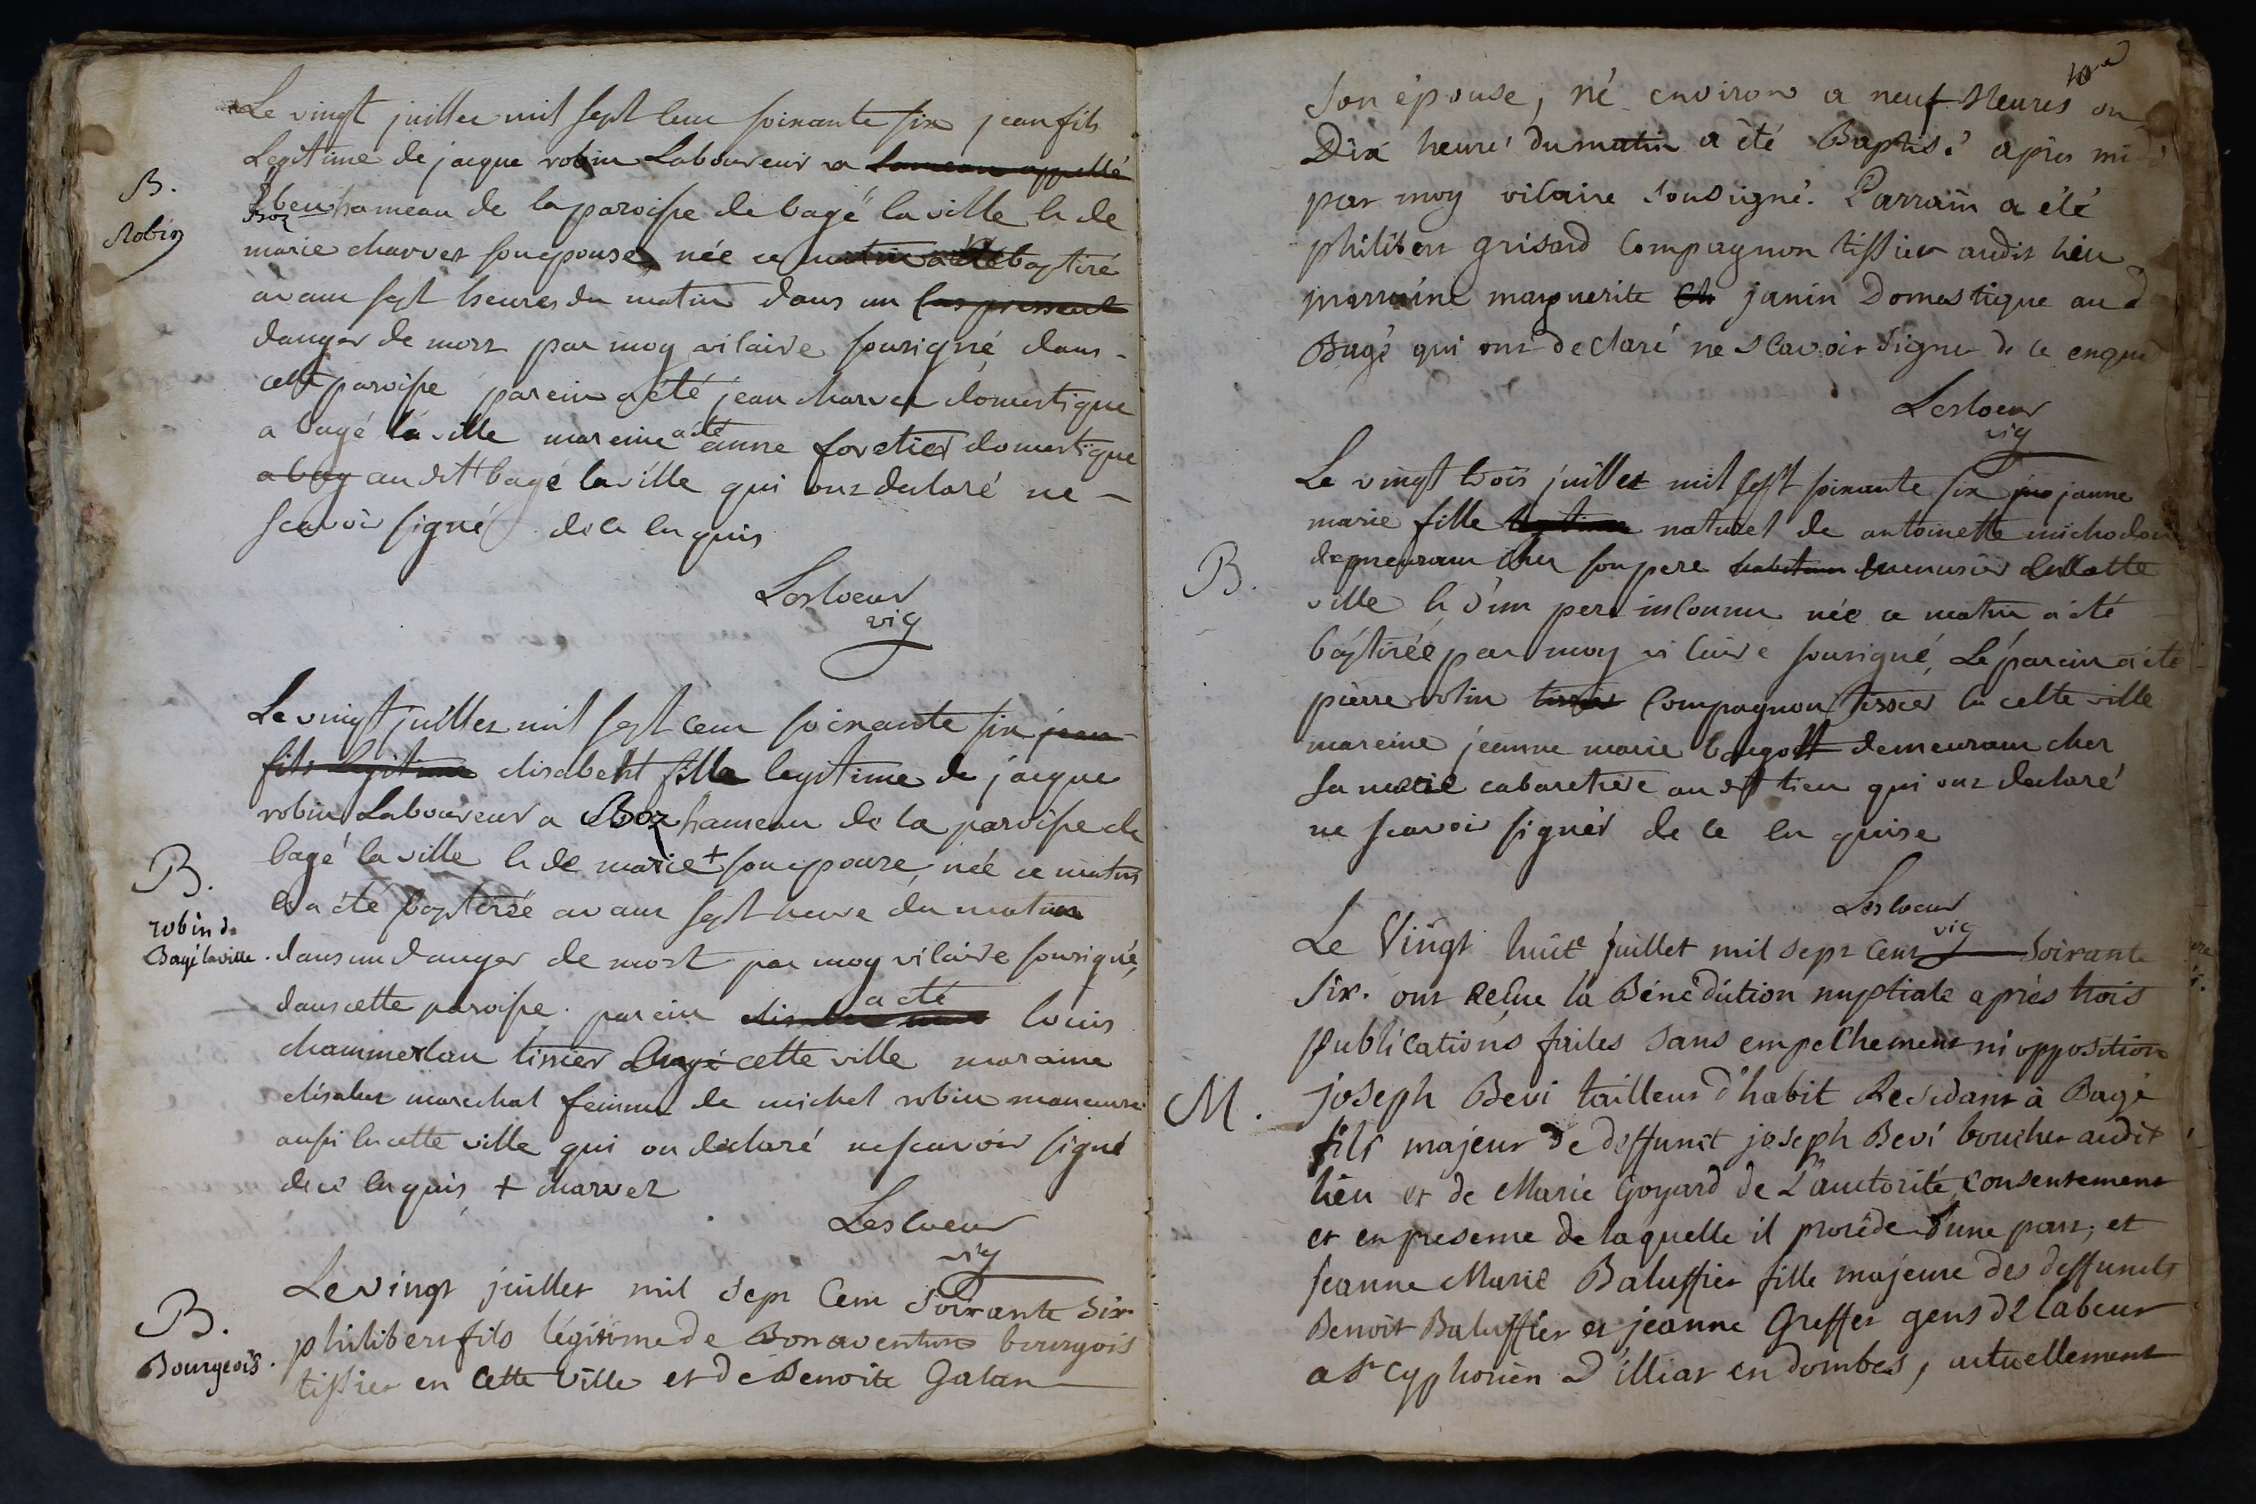 Le vingt juillet mil sept cens soixante six jean fils
Legitime de jacque robin Laboureur a hameau appellé
B.
Robin
Boz hameau de la paroisse de bagé la ville & de
marie charvet son epouse, née ce matin a été baptisé
avant sept heures du matin dans un cas pressent
danger de mort par moy vicaire sousigné dans -
cette paroisse parein a été jean charvet domestique
a bagé la ville mareine a été anne foretier domestique
a bag au dit bagé la ville qui ont declaré ne -
scavoir signé de ce enquis
Lescoeur
vic
Le vingt juillet mil sept cens soixante six jean
fils legitime elisabeht fille legitime de jacque
robin Laboureur a Boz hameau de la paroisse de
bagé la ville & de marie + son epouse, née ce matin
B.
robin de
Bagé la ville.
& a été baptisée avant sept heure du matin
dans un danger de mort par moy vicaire sousigné,
dans cette paroisse. parein a été louis
chammerlan tissier cette ville maraine
elisabet marechal femme de michel robin maneuvre
aussi en cette ville qui on declaré ne scavoir signé
de ce enquis + charvet
Lescoeur
vic
B.
Bourgeois.
Le vingt juillet mil sept Cent Soixante Six
philibert fils légitime de Bonaventure bourgois
tissier en Cette Ville et de Benoite Galan
Son épouse, né environ a neuf Heures ou
Dix heure du matin a été Baptisé après midi
par moy vicaire Sousigné. Parrain a été
philibert grisard Compagnon tissier audit lieu
marraine marguerite Ch janin Domestique au d
Bagé qui ont declaré ne Scavoir Signer de ce enquis
Lescoeur
vic
Le vingt trois juillet mil sept soixante six jea jeanne
marie fille legitime naturel de antoinette michodon
B.
demeurant chez son pere habitant menusier de cette
ville & d'un pere inconnu née ce matin a été
baptisée par moy vicaire sousigné, Le parein a été
pierre robin tissier Compagnon tissier en cette ville
mareine jeanne marie bargott demeurant chez
sa mere cabaretiere au dit lieu qui ont declaré
ne scavoir signér de ce en quise
Lescoeur
vic
Le Vingt huite juillet mil sept Cent Soixante
Six. ont Reçue la Bénédiction nuptiale après trois
publications faites Sans empechement ni opposition
M.
joseph Bevi tailleur d'habit Residant à Bagé
fils majeur de deffunct joseph Bevi boucher audit
lieu et de Marie Goyard de L'auctorité, Consentement
et en presence de laquelle il procéde d'une part, et
jeanne Marie Baluffier fille majeure des deffuncts
Benoit Baluffier et jeanne Greffet gens de labeur
a St Cyphorien D'illiat en dombes, actuellement